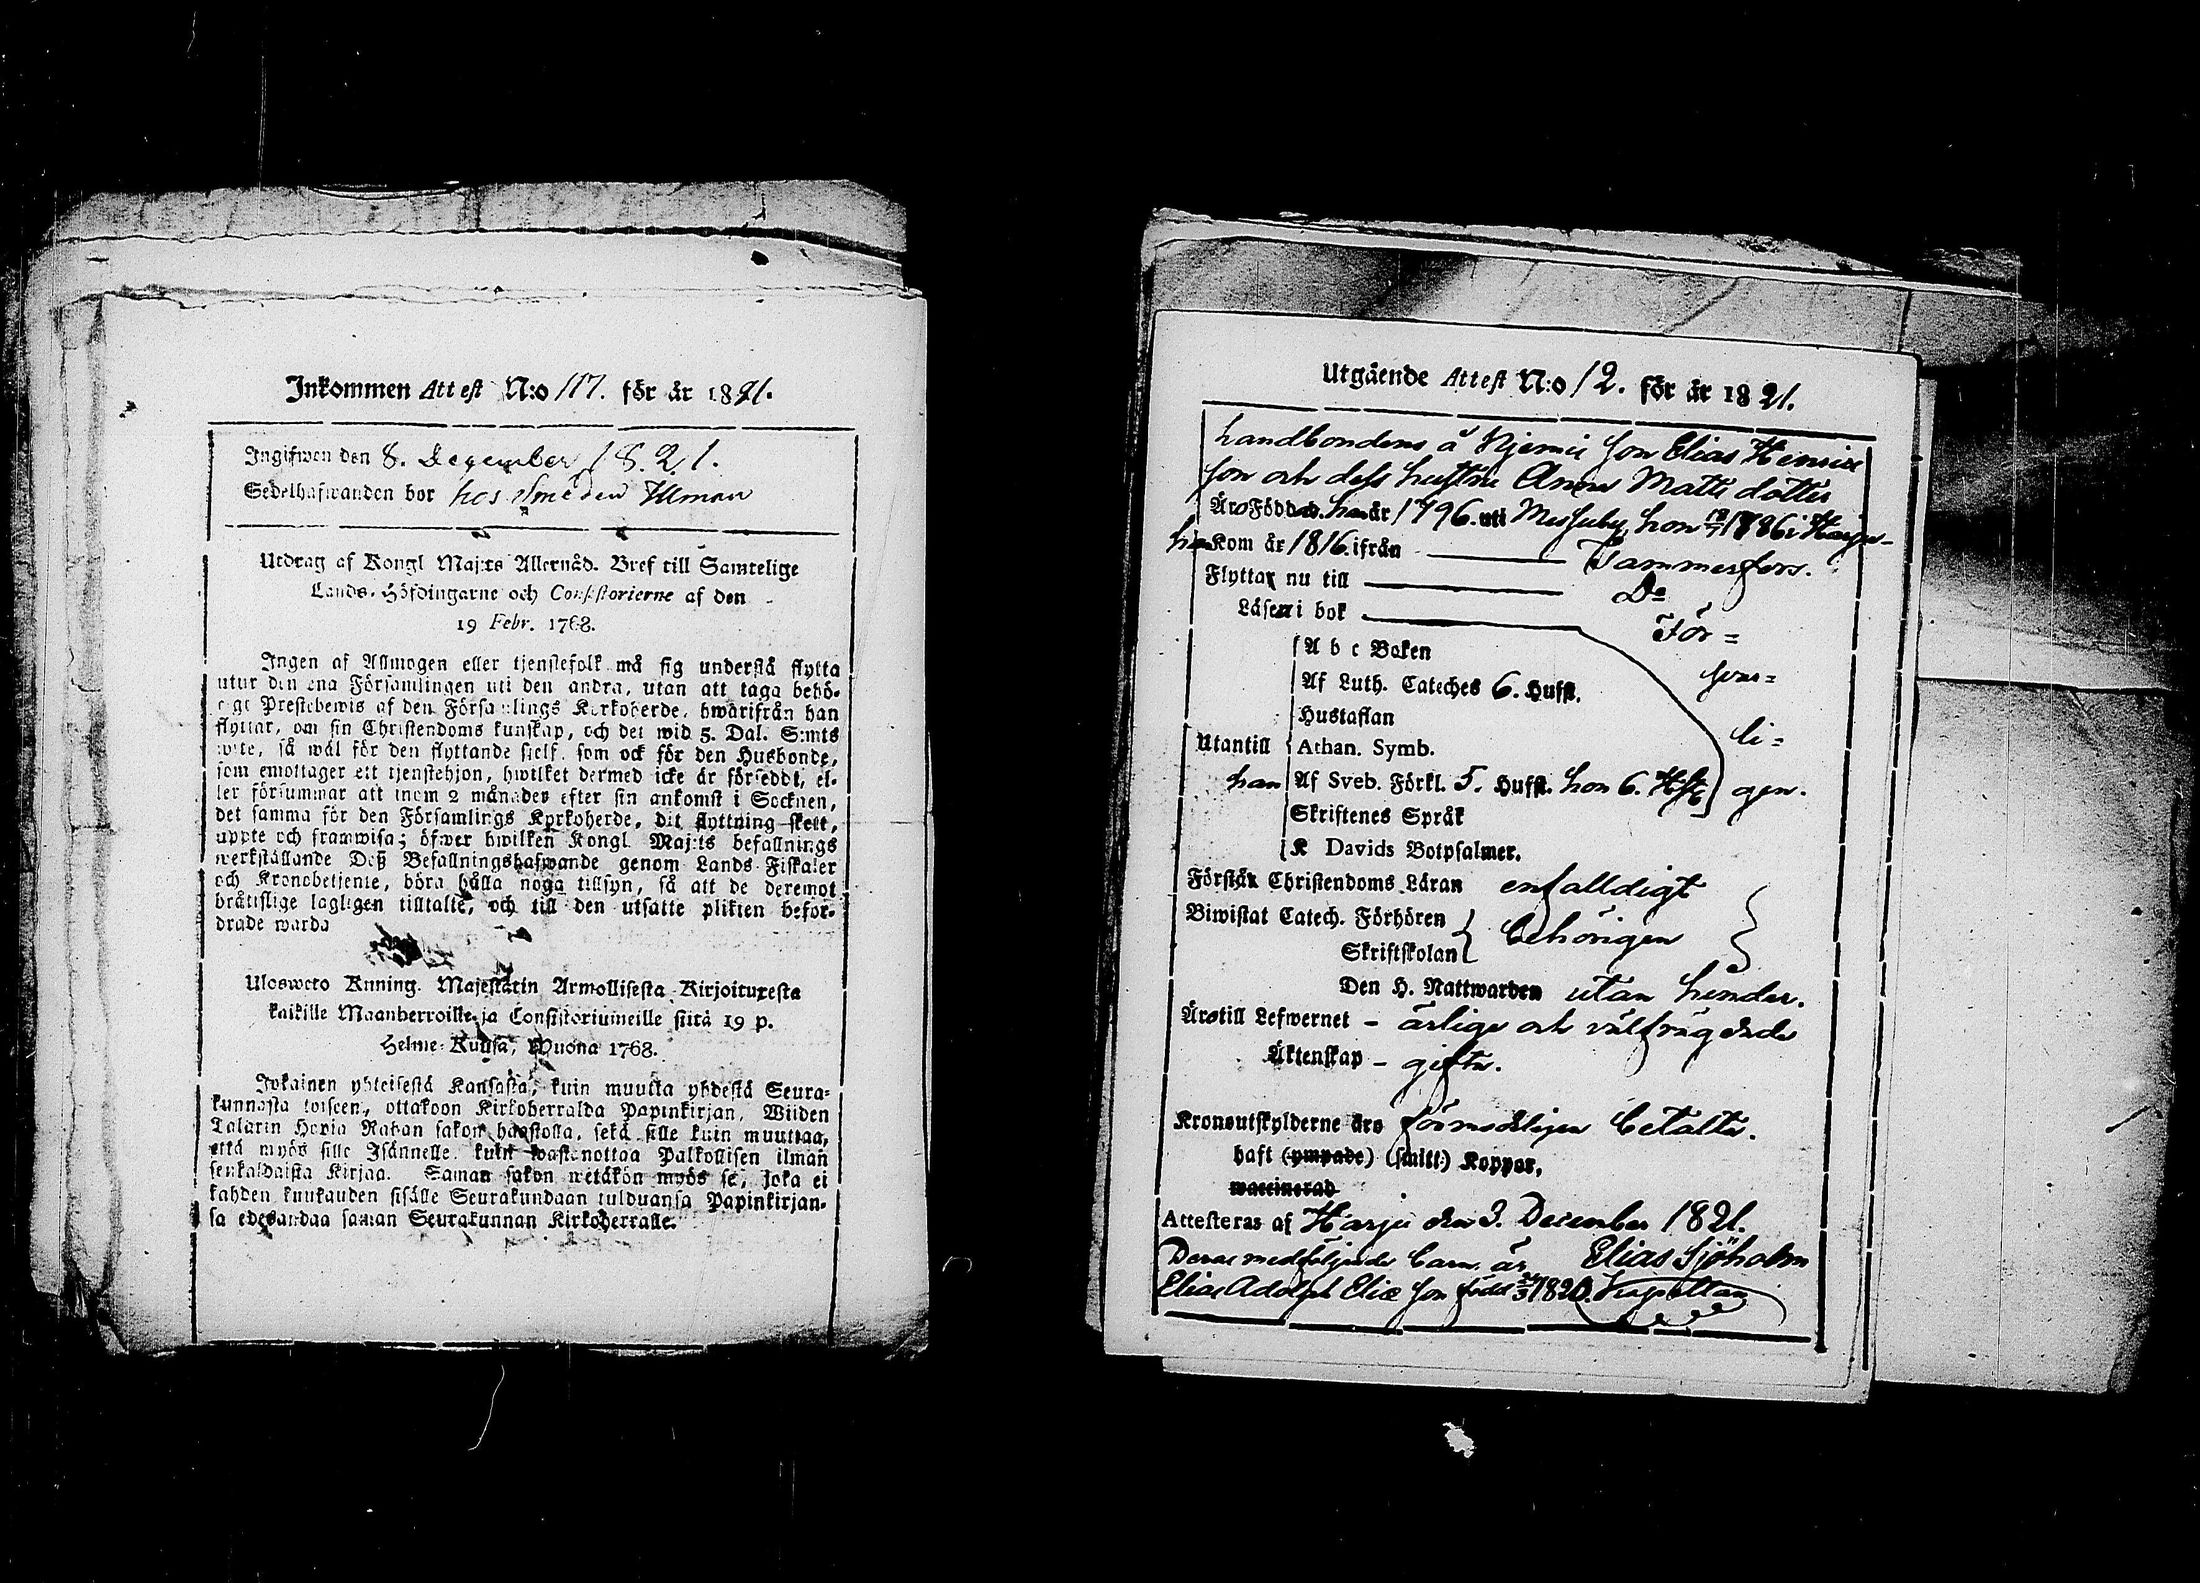 Inkommen Attest N:o 117. för år 1821.
Ingifwen den 8. December 1821.
Sedelhafwanden bor hos Smeden Ulman
Utdrag af Kongl Maj:ts Allernåd. Bref till Samtelige
Lands-Höfdingarne och Consistorierne af den
19 Febr. 1768.
Ingen af Allmogen eller tjenstefolk må sig understå flytta
utur den ena Församlingen uti den andra, utan att taga behö-
rige Prestebewis af den Församlings Kyrkoherde, hwarifrån han
flyttar, om sin Christendoms kunskap, och det wid 5. Dal. S:mts
wite, så wäl för den flyttande sielf, som ock för den Husbonde,
som emottager ett tjenstehjon, hwilket dermed icke är försedt, el-
ler försummar att inom 2 månader efter sin ankomst i Socknen,
det samma för den Församlings Kyrkoherde, dit flyttning skett,
uppte och framwisa; öfwer hwilken Kongl Maj:ts befallnings
werkställande Deß Befallningshafwande genom Lands Fiskaler
och Kronobetjente, böra hålla noga tillsyn, så att de deremot
bråttslige lagligen tilltalte, och till den utsatte plikten befor-
drade warda
Ulosweto Kuning. Majestätin Armollisesta Kirjoituxesta
kaikille Maanherroille ja Consistoriumeille siitä 19 p.
Helme-Kuusa, Wuona 1768.
Jokainen yhteisestä Kansasta, kuin muutta yhdestä Seura-
kunnasta toiseen, ottakoon Kirkoherralda Papinkirjan, Wiiden
Talarin Hopia Rahan sakon haastolla, sekä sille kuin muuttaa,
että myös sille Isännelle, kuin wastanottaa Palkollisen ilman
senkaldaista Kirjaa. Saman sakon wetäkön myös se, joka ei
kahden kuukauden sisälle Seurakundaan tulduansa Papinkirjan-
sa edesandaa saman Seurakunnan Kirkoherralle.
Utgående Attest N:o 12. för år 1821.
handbondens å Njemis son Elias Henrics
son och dess hustru Anna Matts dotter
Äro Född han är 1796. uti Messuby, hon 1786 i Harju
han Kom år 1816 ifrån Tammerfors.
Flyttar nu till Do
Läsen i bok För=
A b c Boken
sva=
Af Luth. Cateches 6. Hufst.
Hustaflan
li=
Utantill Athan. Symb.
han Af Sveb. Förkl. 5. Hufst. hon 6. Hfst gen.
Skriftenes Språk
K Davids Botpsalmer.
Förstår Christendoms Läran enfalldigt
Biwistat Catech. Förhören
behörigen
Skriftskolan
Den H. Nattwarden utan hinder.
Äro till Lefwernet – ärlige och välfrägdade
Äktenskap – gifta.
Kronoutskylderne äro förmodeligen betalta.
haft (ympade) (smitt) Koppor,
waccinerad
Attesteras af Harju den 3. December 1821.
Deras medföljande barn är Elias Sjöholm
Elias Adolph Eliæ son född 1820. Capellan